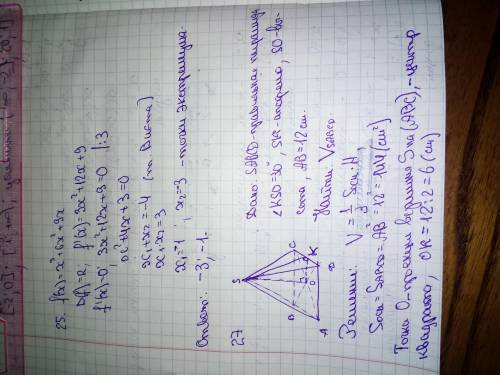 25. f(x)=x³+6x²+9x
D(f)=R, f'(x)=3x²+12x+9
f'(x)=0, 3x²+12x+9=0 |:3
x²+4x+3=0
x₁+x₂=-4 (т. Виета)
x₁x₂=3
x₁=1; x₂=3 - точки экстремума.
Ответ: -3; -1.
27
Дано SABCD-правильная пирамида
∠KSO=30°, SK-апофема, SO-вы-
сота, AB=12 см.
Найти V SABCD
S
C
K
D
O
B
A
Решение: V = 1/3 Sосн·H,
Sосн = SABCD = AB² = 12² = 144 (см²)
Точка O-проекция вершины S на (ABC),-центр
квадрата, OK = 12:2 = 6 (см)